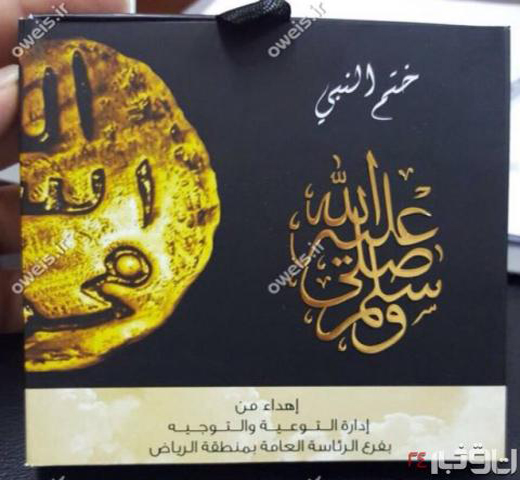 ختم النبي
صلى الله عليه وسلم
الله
محمد
إهداء من
إدارة التوعية والتوجيه
بفرع الرئاسة العامة بمنطقة الرياض
oweis.ir
oweis.ir
oweis.ir
oweis.ir
oweis.ir
oweis.ir